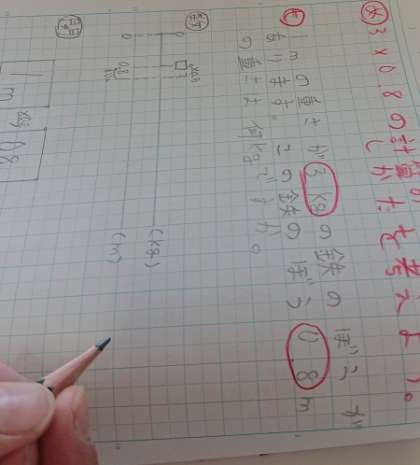 3×0.8の計算のしかたを考えよう。
1mの重さが3kgの鉄のぼうが
あります。この鉄のぼう0.8m
の重さは何kgですか。
×0.8
0 □ 3 (kg)
0 0.8 1 (m)
1m ×0.8 0.8